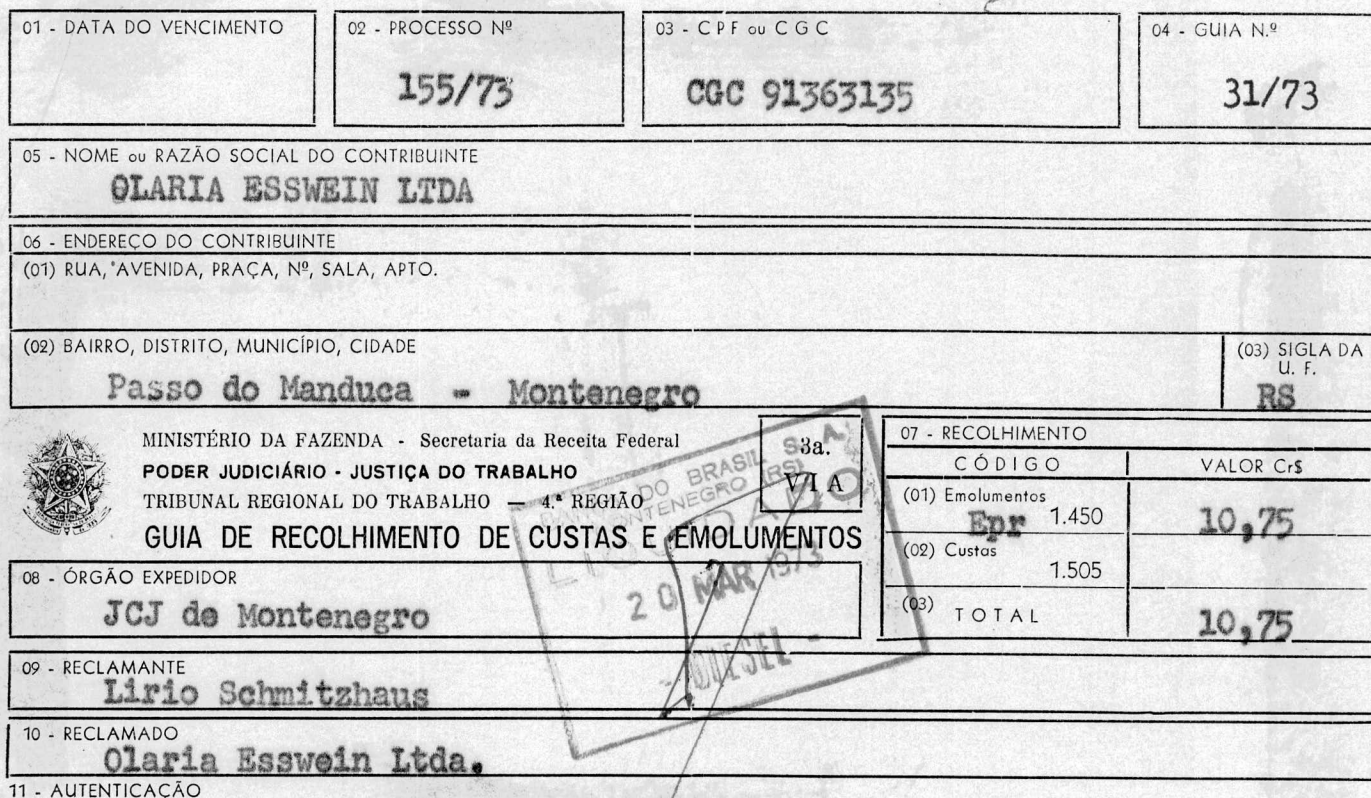 01 - DATA DO VENCIMENTO
02 - PROCESSO Nº
155/73
03 - C P F ou C G C
CGC 91363135
04 - GUIA N.º
31/73
05 - NOME ou RAZÃO SOCIAL DO CONTRIBUINTE
OLARIA ESSWEIN LTDA
06 - ENDEREÇO DO CONTRIBUINTE
(01) RUA, AVENIDA, PRAÇA, Nº, SALA, APTO.
(02) BAIRRO, DISTRITO, MUNICÍPIO, CIDADE
Passo do Manduca - Montenegro
(03) SIGLA DA
U. F.
RS
MINISTÉRIO DA FAZENDA - Secretaria da Receita Federal
PODER JUDICIÁRIO - JUSTIÇA DO TRABALHO
TRIBUNAL REGIONAL DO TRABALHO — 4.ª REGIÃO
GUIA DE RECOLHIMENTO DE CUSTAS E EMOLUMENTOS
3a.
VIA
BANCO DO BRASIL S. A.
MONTENEGRO (RS)
LIQUIDADO
20 MAR 1973
07 - RECOLHIMENTO
CÓDIGO
VALOR Cr$
(01) Emolumentos
Epr 1.450
10,75
(02) Custas
1.505
(03) TOTAL
10,75
08 - ÓRGÃO EXPEDIDOR
JCJ de Montenegro
09 - RECLAMANTE
Lirio Schmitzhaus
10 - RECLAMADO
Olaria Esswein Ltda.
11 - AUTENTICAÇÃO